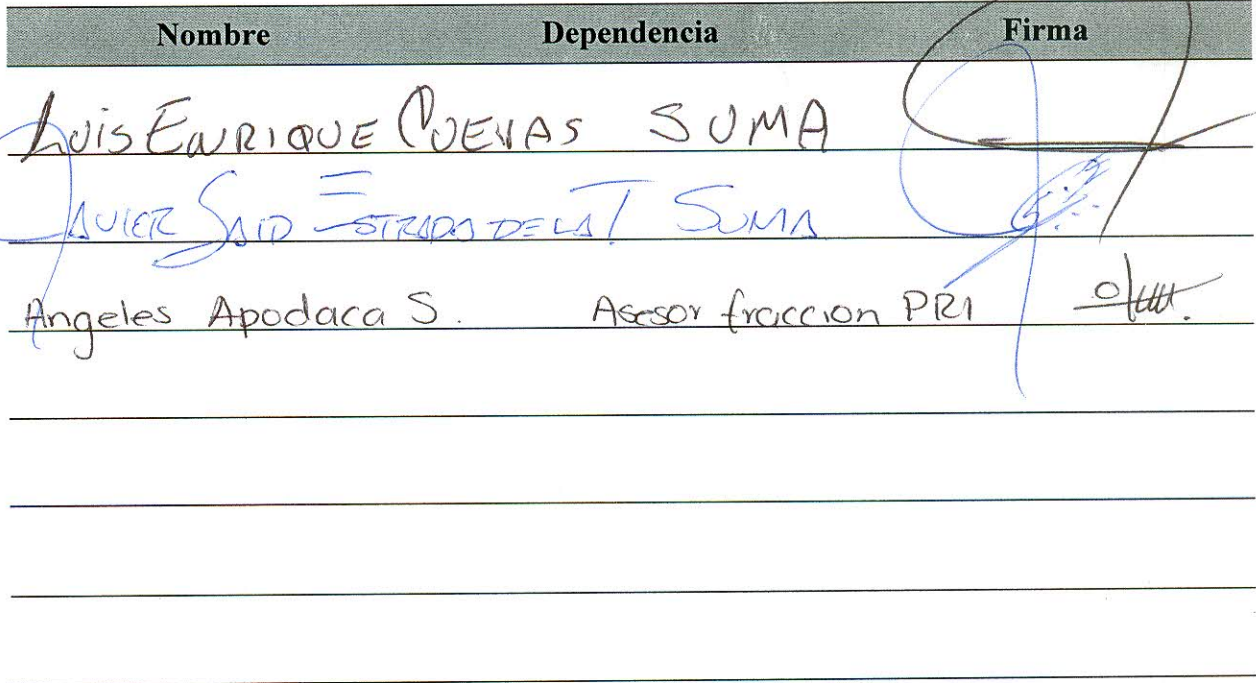 Nombre Dependencia Firma
LUIS ENRIQUE CUEVAS SUMA
JAVIER SAID ESTRADA DE LA T SUMA
Angeles Apodaca S. Asesor fraccion PRI